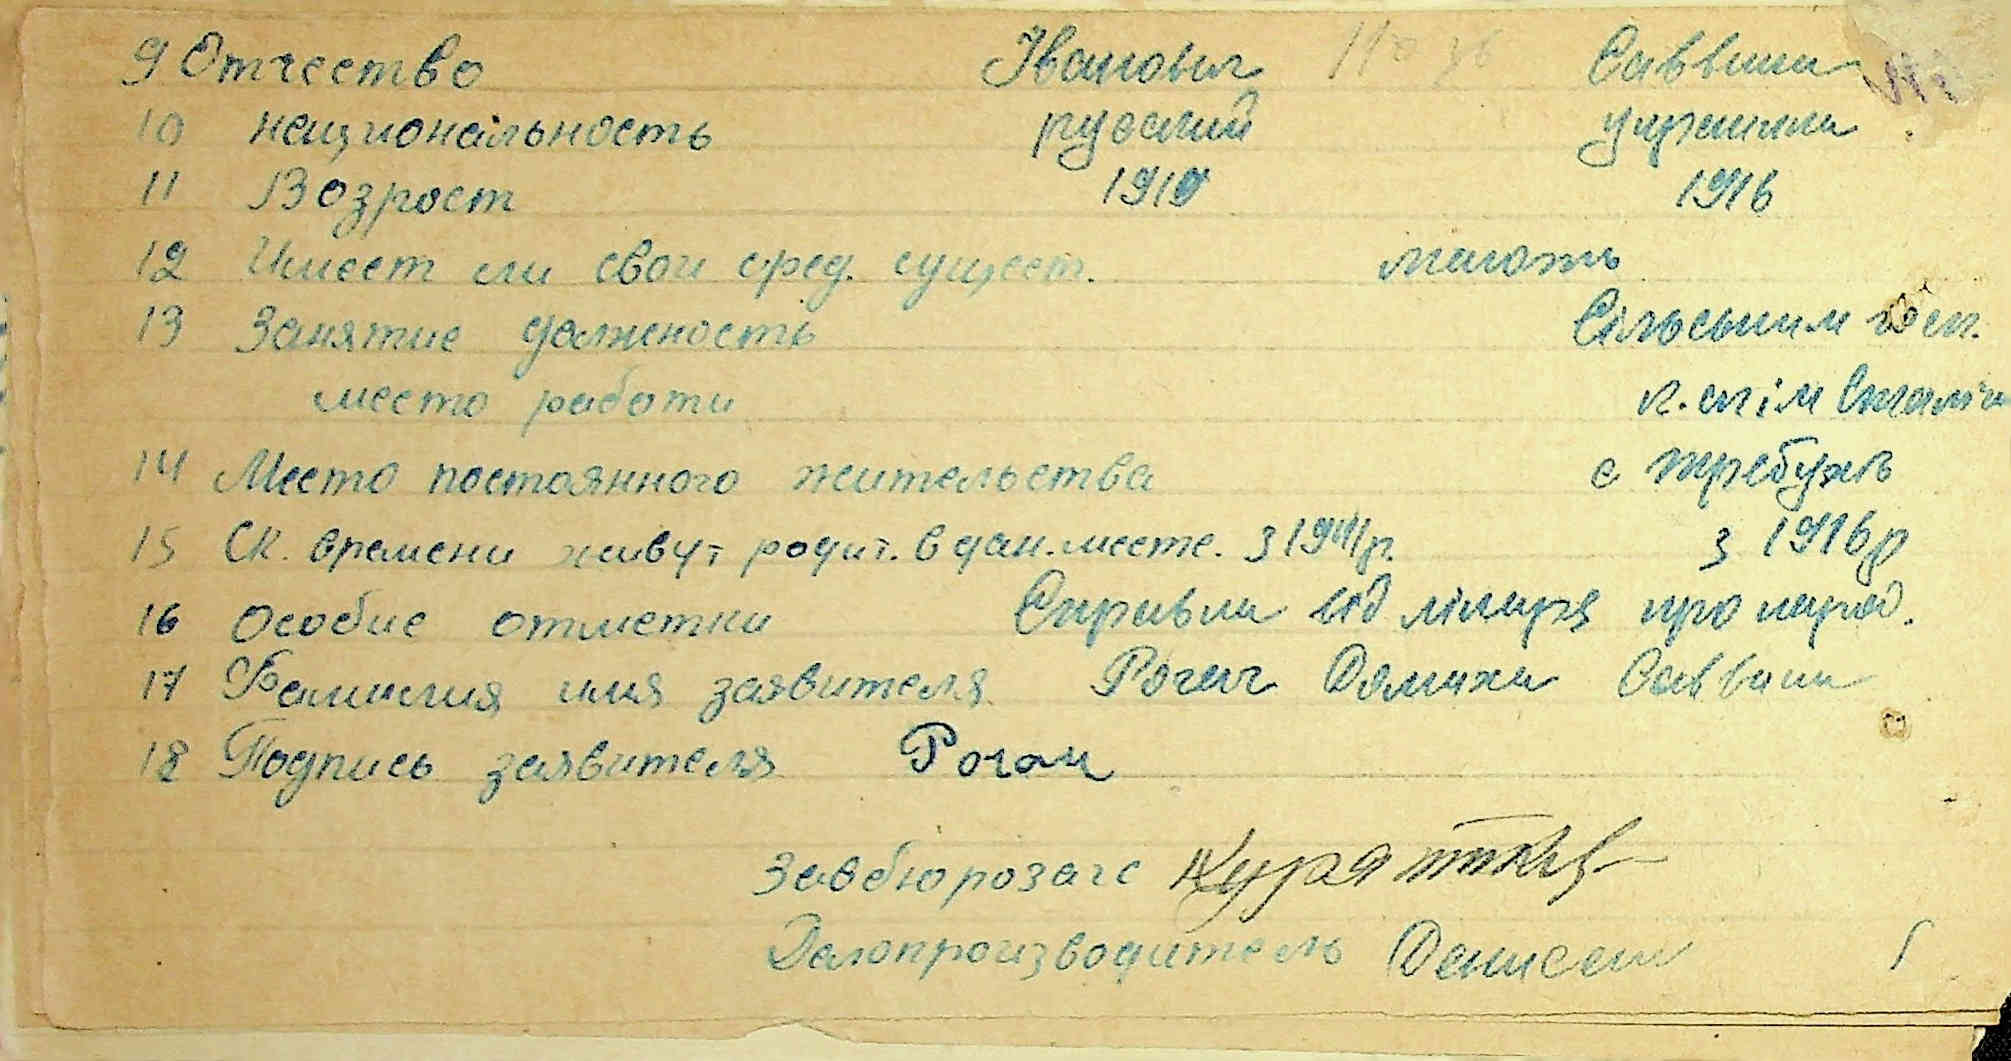 9 Отчество Іванович Саввична
10 национальность руский українка
11 Возрост 1910 1916
12 Имеет ли свои сред. сущест. мають
13 Занятие должность Сільським госп.
место работи к. сп ім Сталіна
14 Место постоянного жительства с Требухів
15 Ск. времени живут родит. в дан. месте. з 1941р. з 1916р
16 Особие отметки Справка від лікаря про народ.
17 Фамилия имя заявителя Рогач Домаха Саввична
18 Подпись заявителя Рогач
Завбюрозагс
Делопроизводитель